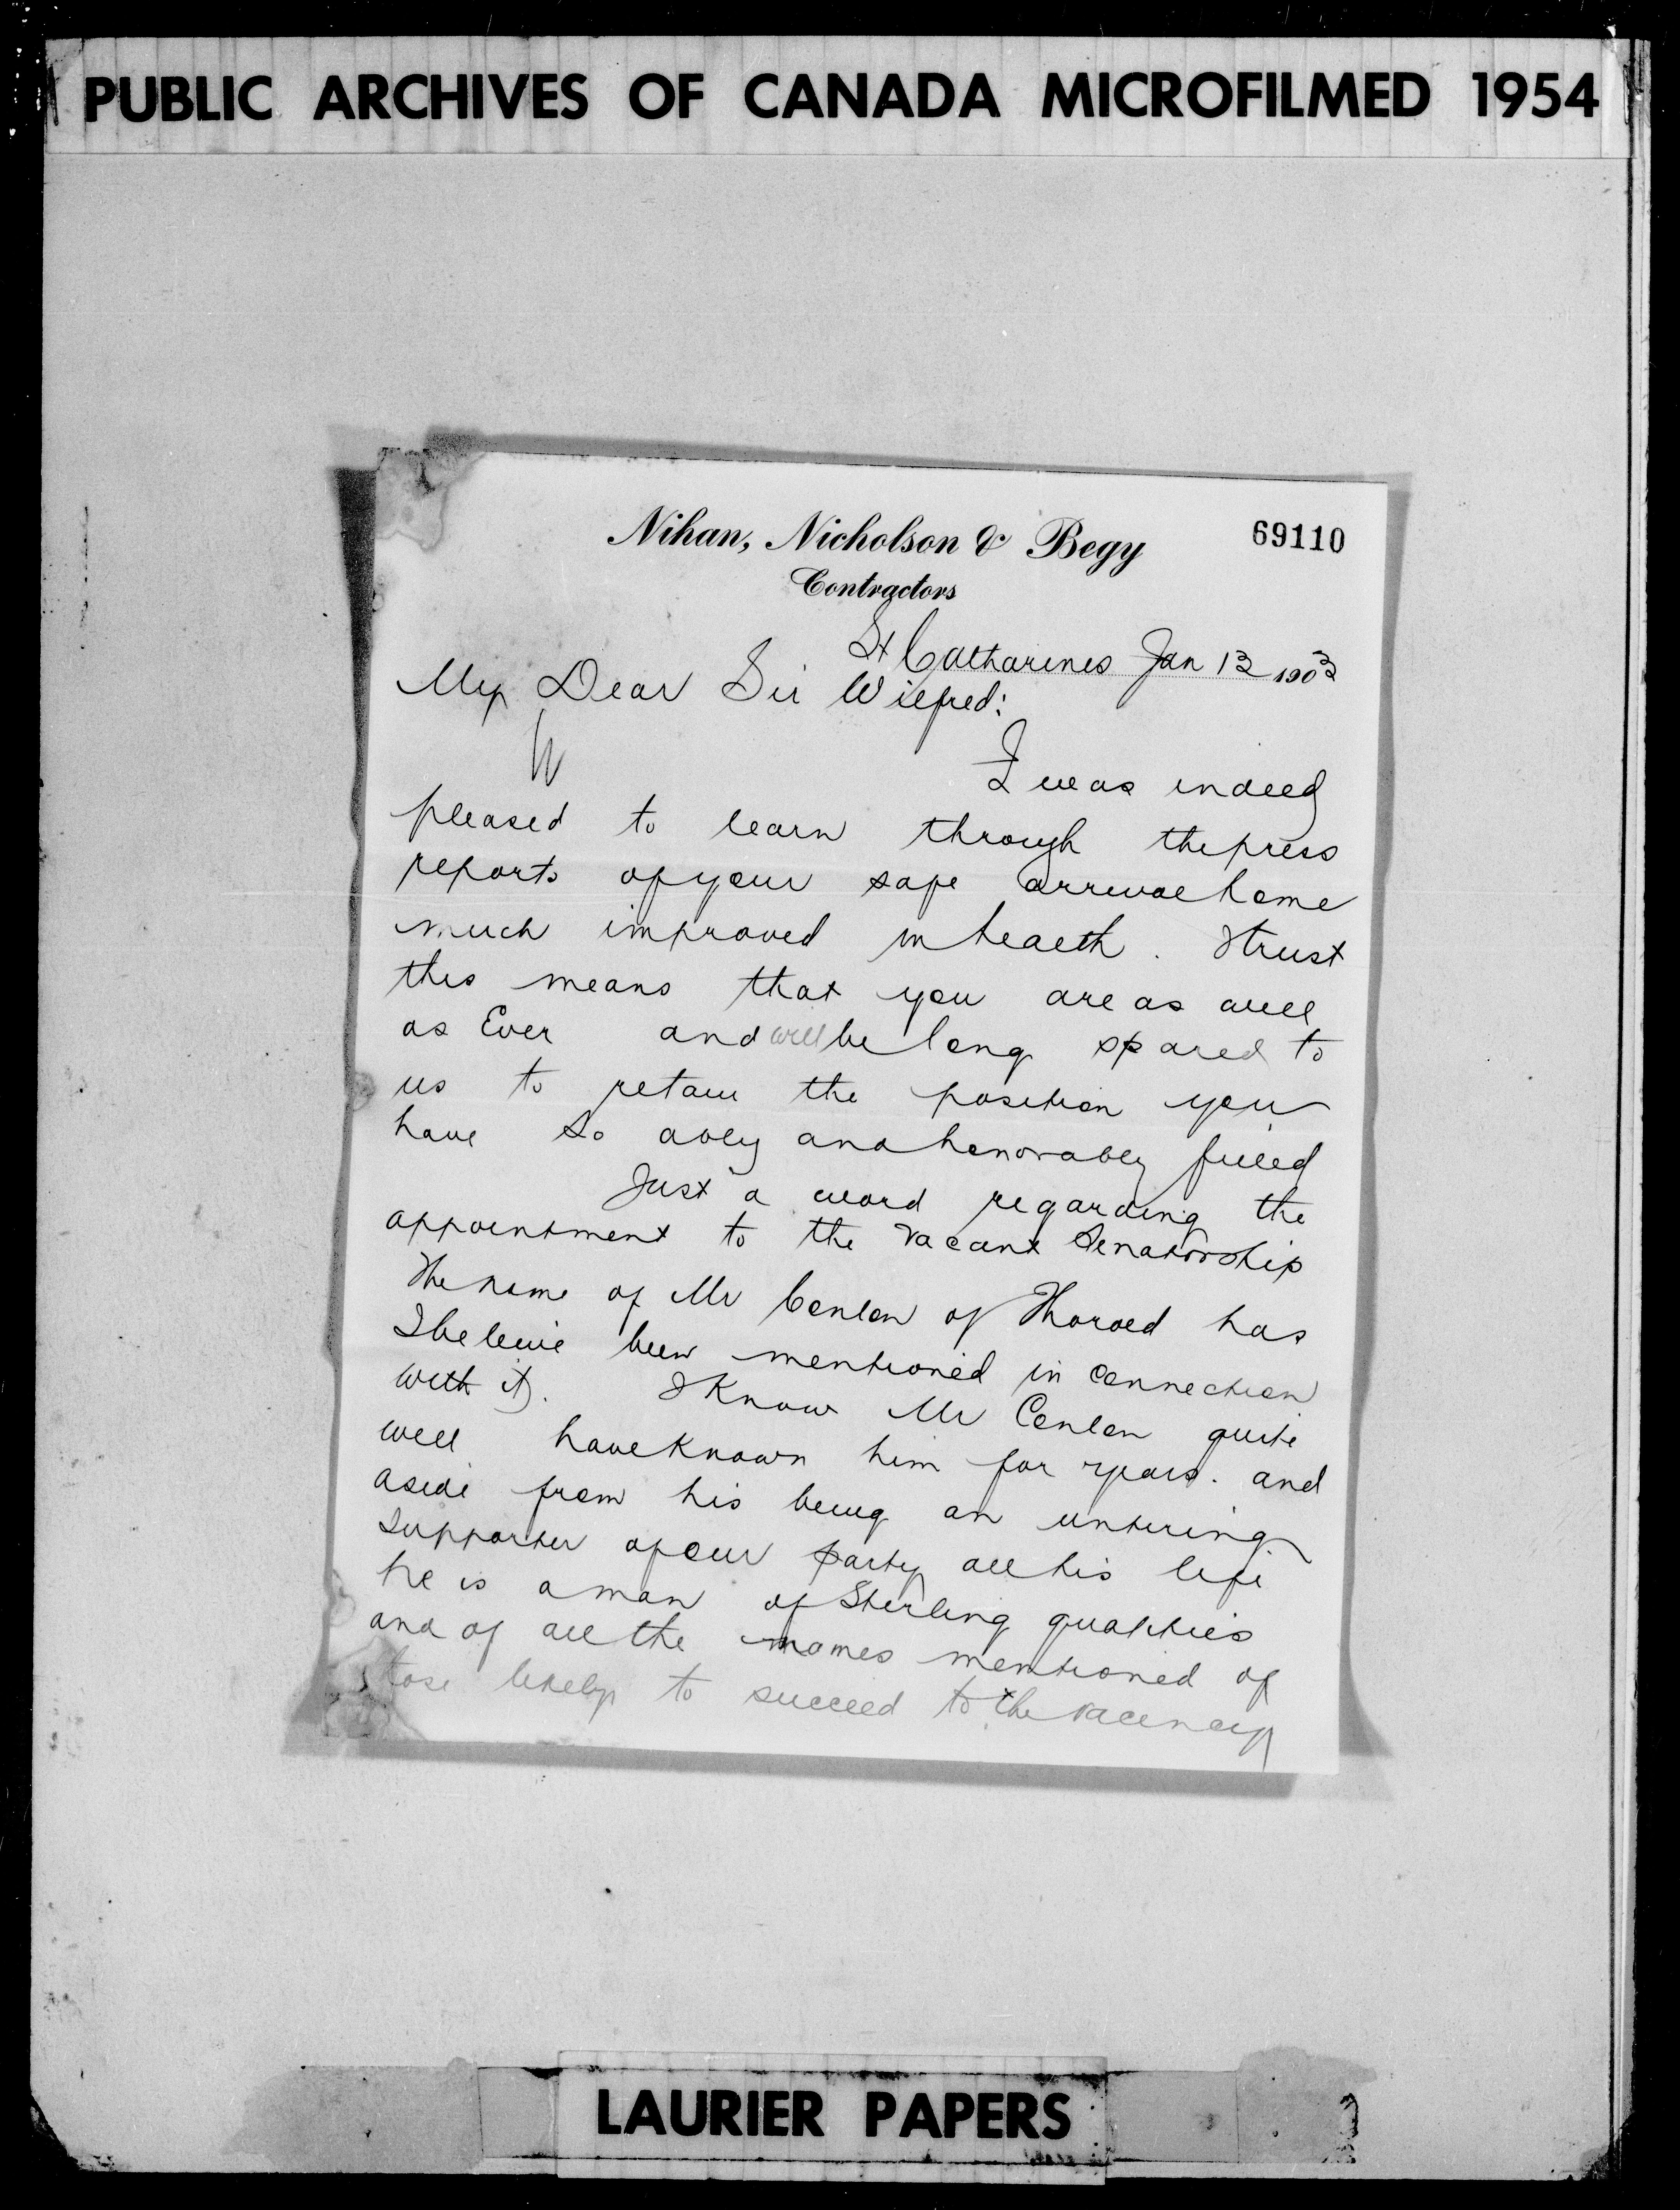 PUBLIC ARCHIVES OF CANADA MICROFILMED 1954
Nihan, Nicholson & Begy
69110
Contractors
St Catharines Jan 13 1903
My Dear Sir Wilfred:
I was indeed
pleased to learn through the press
reports of your safe arrival home
much improved in health. I trust
this means that you are as well
as Ever and will be long spared to
us to retain the position you
have so ably and honorably filled
Just a word regarding the
appointment to the vacant Senatorship
The name of Mr Conlon of Thorold has
I beleive been mentioned in connection
with it. I Know Mr Conlon quite
well have Known him for years. and
aside from his being an untiring
supporter of our party all his life
he is a man of Sterling qualities
and of all the names mentioned of
tose likely to succeed to the vacency
LAURIER PAPERS